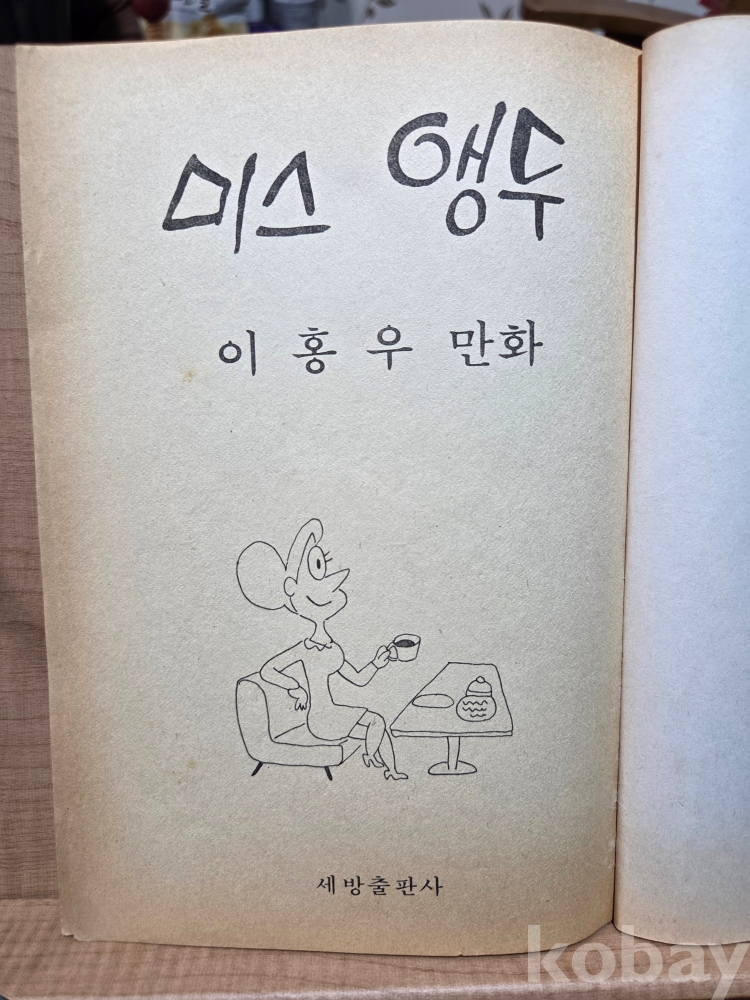 미스 앵두
이홍우 만화
세방출판사
kobay